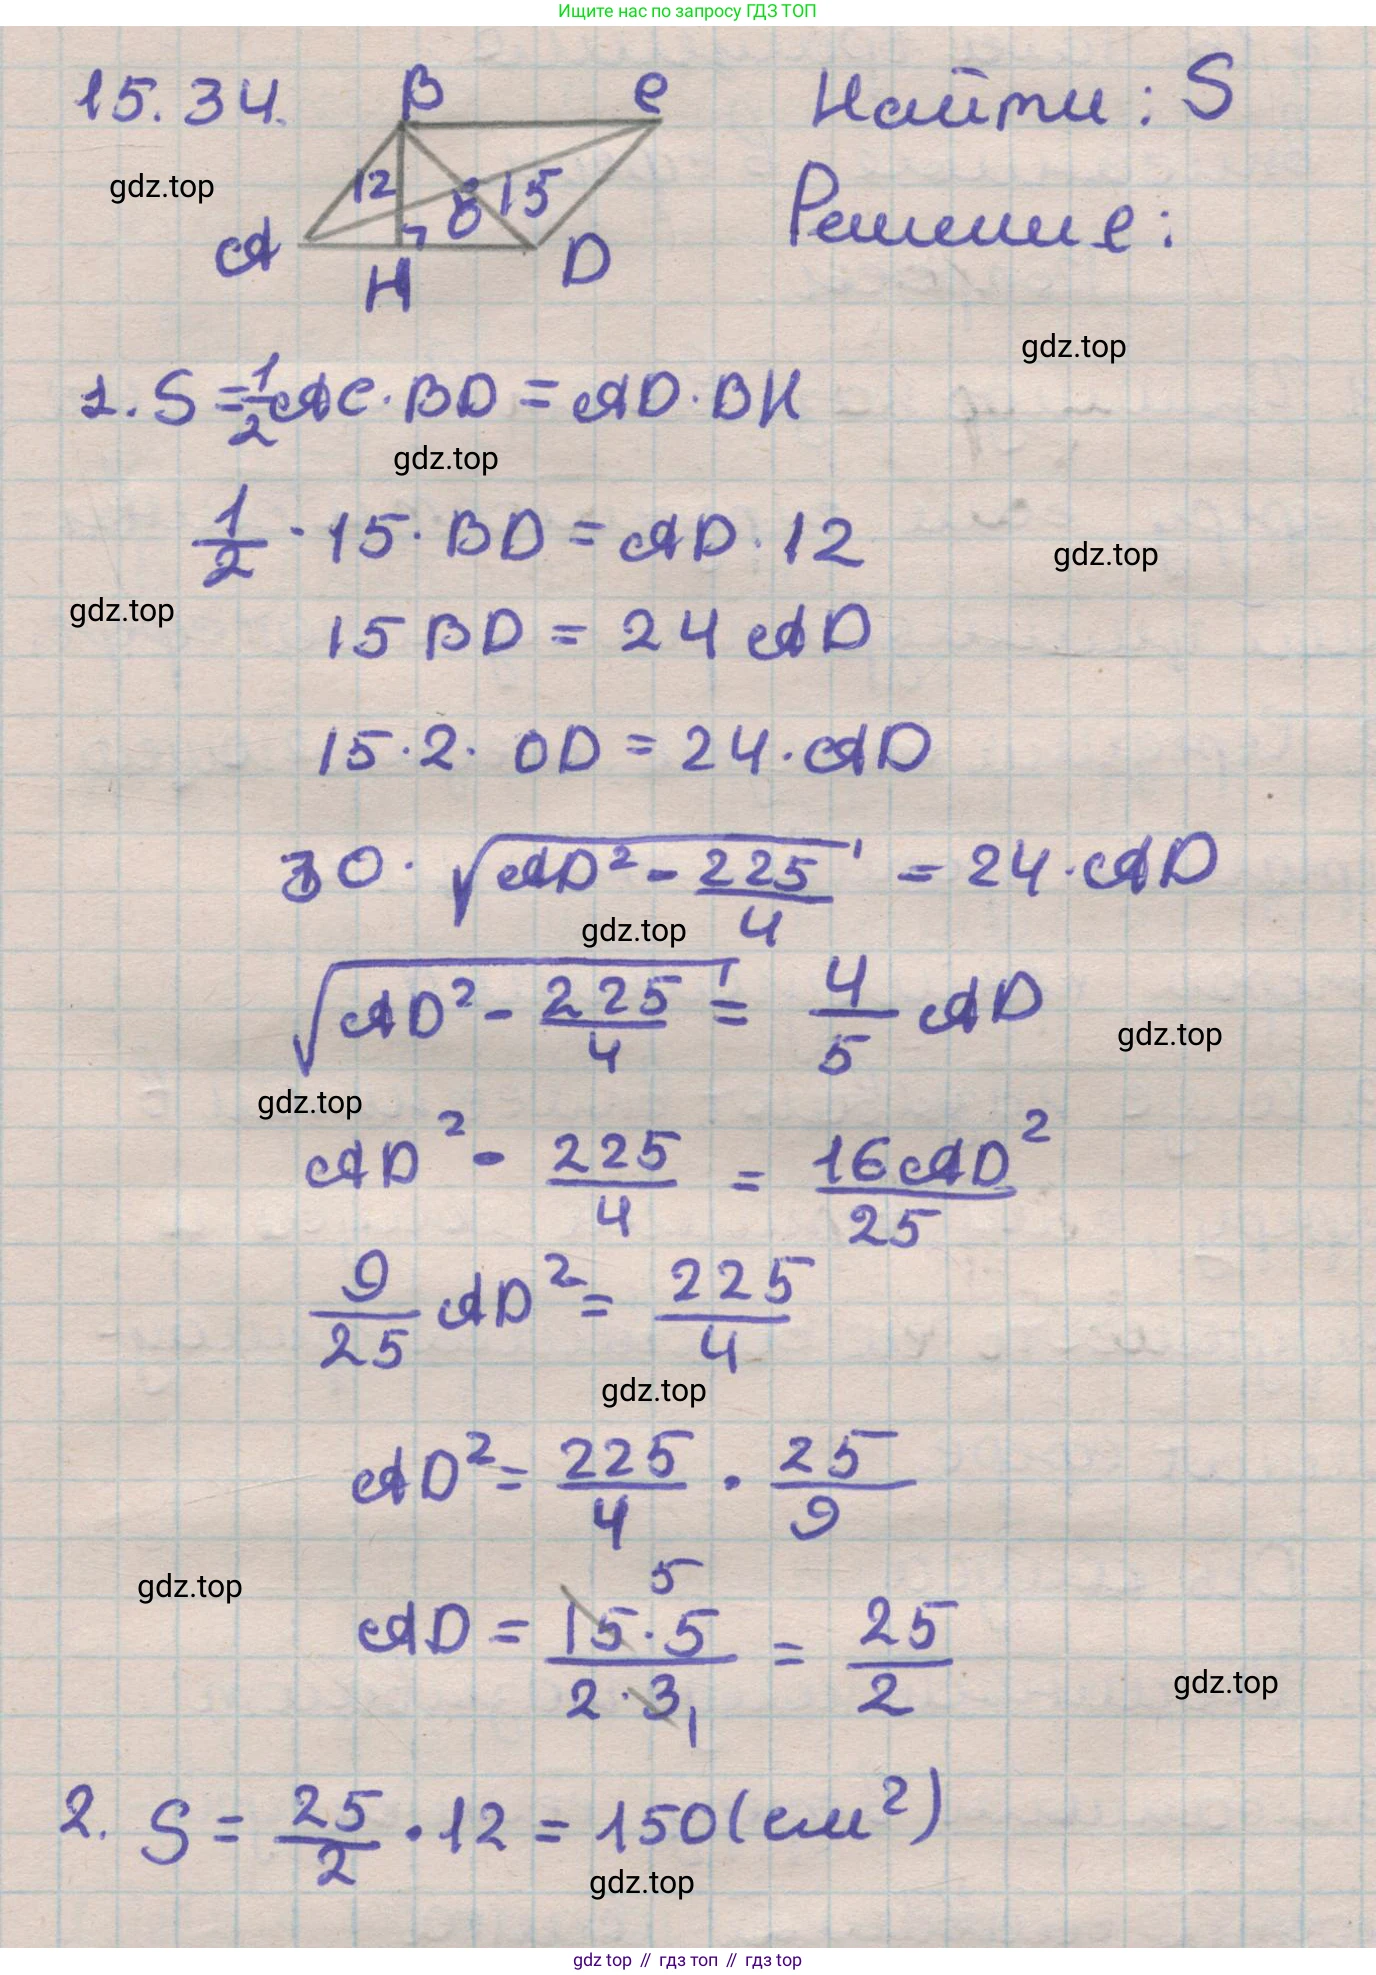 Ищите нас по запросу ГДЗ ТОП
15.34.
B C
Найти: S
gdz.top
12 O 15
Решение:
A H D
gdz.top
1. S = 1/2 AC · BD = AD · BH
gdz.top
1/2 · 15 · BD = AD · 12
gdz.top
gdz.top
15 BD = 24 AD
15 · 2 · OD = 24 · AD
30 · √(AD² - 225/4) = 24 · AD
gdz.top
√(AD² - 225/4) = 4/5 AD
gdz.top
gdz.top
AD² - 225/4 = 16AD²/25
9/25 AD² = 225/4
gdz.top
AD² = 225/4 · 25/9
gdz.top
5
AD = 15·5/2·3 = 25/2
1
gdz.top
2. S = 25/2 · 12 = 150 (см²)
gdz.top
gdz top // гдз топ // gdz top